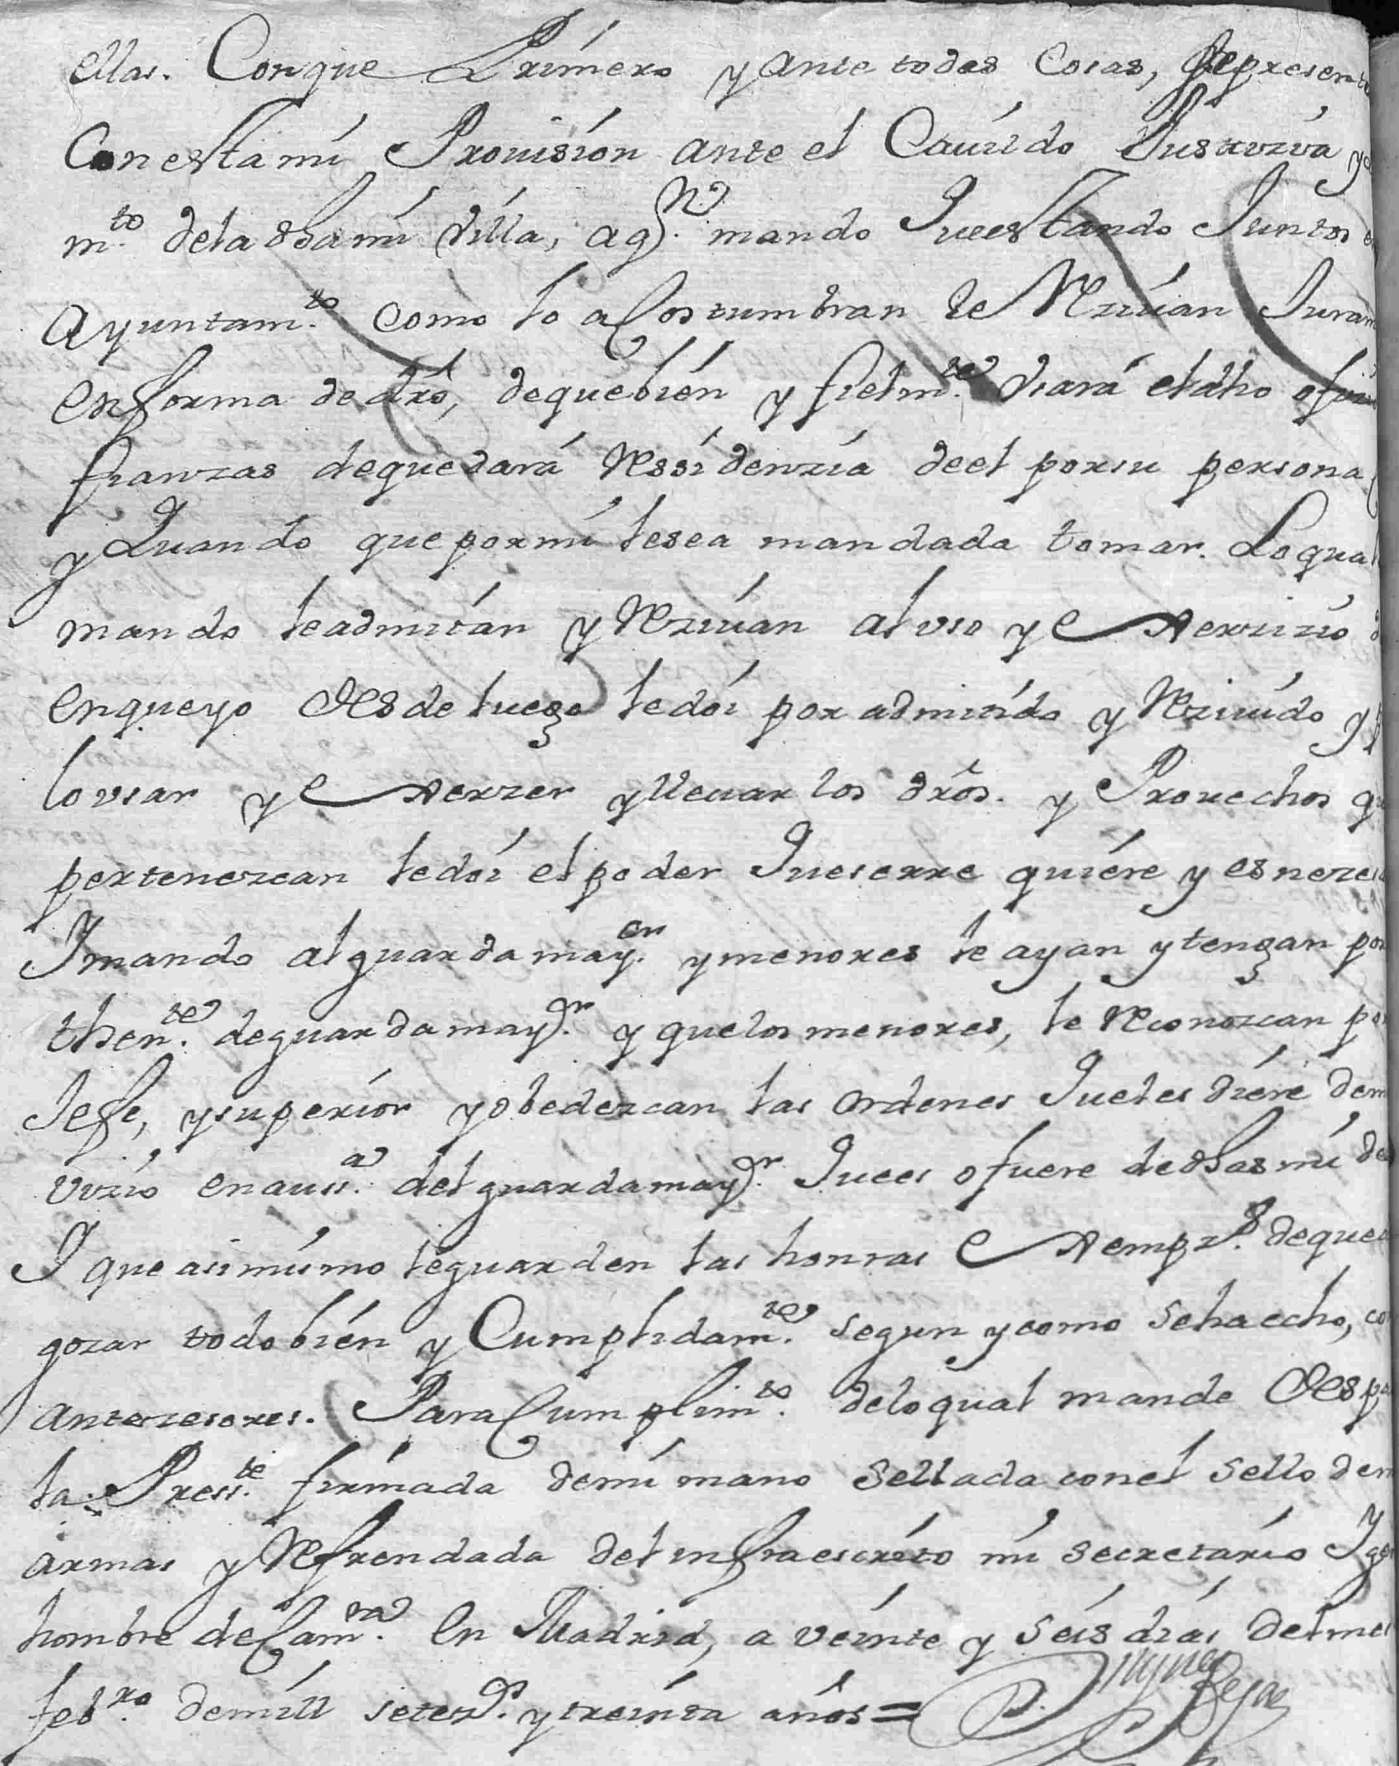 ellas. Conque Primero y ante todas Cosas, sepresente
Con esta mi Prouision ante el Cauildo Justizia y
mto. dela dha mi Villa, a qn. mando Queestando Juntos
Ayuntamto. como lo acostumbran le Reziuan Juram
en forma de dro, dequebien y fielmte. Vsará eldho ofizio
fianzas dequedará Ressidenzia deel porsu persona
y Quando que pormi lesea mandada tomar. Loqual
mando leadmitan y Reziuan al vso y exerzizio
enqueyo desdeluego ledoi por admitido y Reziuido y p
lo vsar y exerzer y lleuar los dros. y Prouechos que
pertenezcan ledoi el poder Queserre quiere y es neze
Y mando alguarda mayor. y menores le ayan y tengan por
thente. deguarda mayr. y quelos menores, le Reconozcan por
Jefe, y superior y obedezcan las ordenes Queles diere dem
vizio en aussa. del guardamayr. Quees o fuere de dhas mi de
Y que asimismo leguarden las honras exempzs. deque
gozar todo bien y Cumplidamte. segun y como sehaecho, co
antezesores. Para Cumplimto. deloqual mande desp
la Presste. firmada demi mano sellada conel sello dem
armas y Refrendada del infraescrito mi secretario Y gen
hombre de Camra. En Madrid, a veinte y seis dias del mes
febro. demill setezs. y treinta años =